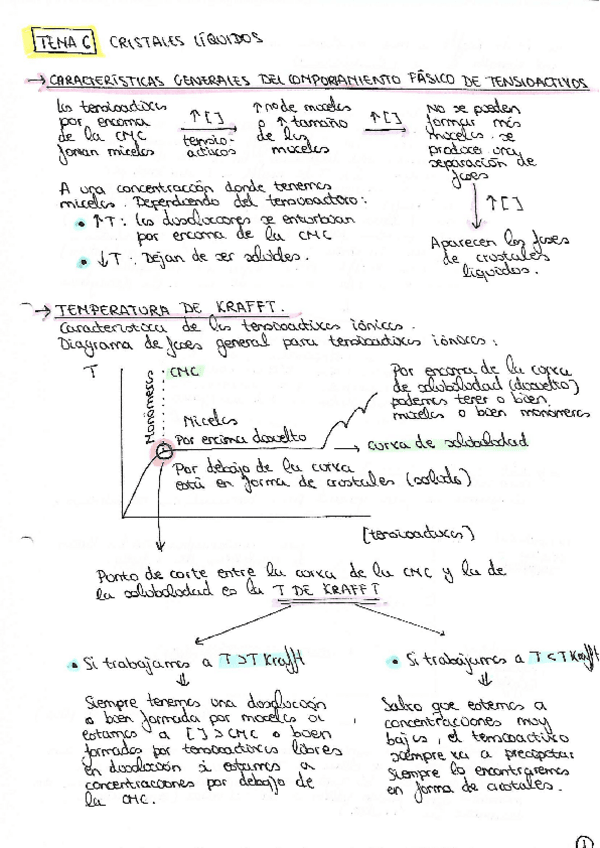 TEMA 6 CRISTALES LÍQUIDOS
→ CARACTERÍSTICAS GENERALES DEL COMPORTAMIENTO FÁSICO DE TENSIOACTIVOS
Los tensioactivos
por encima
de la CMC
forman micelas
↑[ ]
tensio-
activos
↑ nº de micelas
o ↑ tamaño
de las
micelas
↑[ ]
No se pueden
formar más
micelas. se
produce una
separación de
fases
↑[ ]
Aparecen las fases
de cristales
líquidos.
A una concentración donde tenemos
micelas. Dependiendo del tensioactivo:
• ↑T: Las disoluciones se enturbian
por encima de la CMC
• ↓T: Dejan de ser solubles.
→ TEMPERATURA DE KRAFFT.
Característica de los tensioactivos iónicos.
Diagrama de fases general para tensioactivos iónicos:
T
Monómeros
CMC
Micelas
Por encima disuelto
Por encima de la curva
de solubilidad (disuelto)
podemos tener o bien
micelas o bien monómeros
→ curva de solubilidad
Por debajo de la curva
está en forma de cristales (sólido)
[tensioactivos]
Punto de corte entre la curva de la CMC y la de
la solubilidad es la T DE KRAFFT
• Si trabajamos a T>T Krafft
Siempre tenemos una disolución
o bien formada por micelas si
estamos a [ ]>CMC o bien
formadas por tensioactivos libres
en disolución si estamos a
concentraciones por debajo de
la CMC.
• Si trabajamos a T<T Krafft
Salvo que estemos a
concentraciones muy
bajas, el tensioactivo
siempre va a precipitar
Siempre lo encontraremos
en forma de cristales.
1